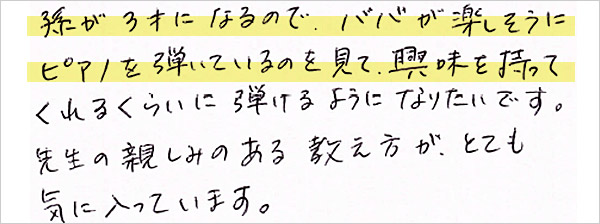 孫が3才になるので、ババが楽しそうに
ピアノを弾いているのを見て、興味を持って
くれるくらいに弾けるようになりたいです。
先生の親しみのある教え方が、とても
気に入っています。